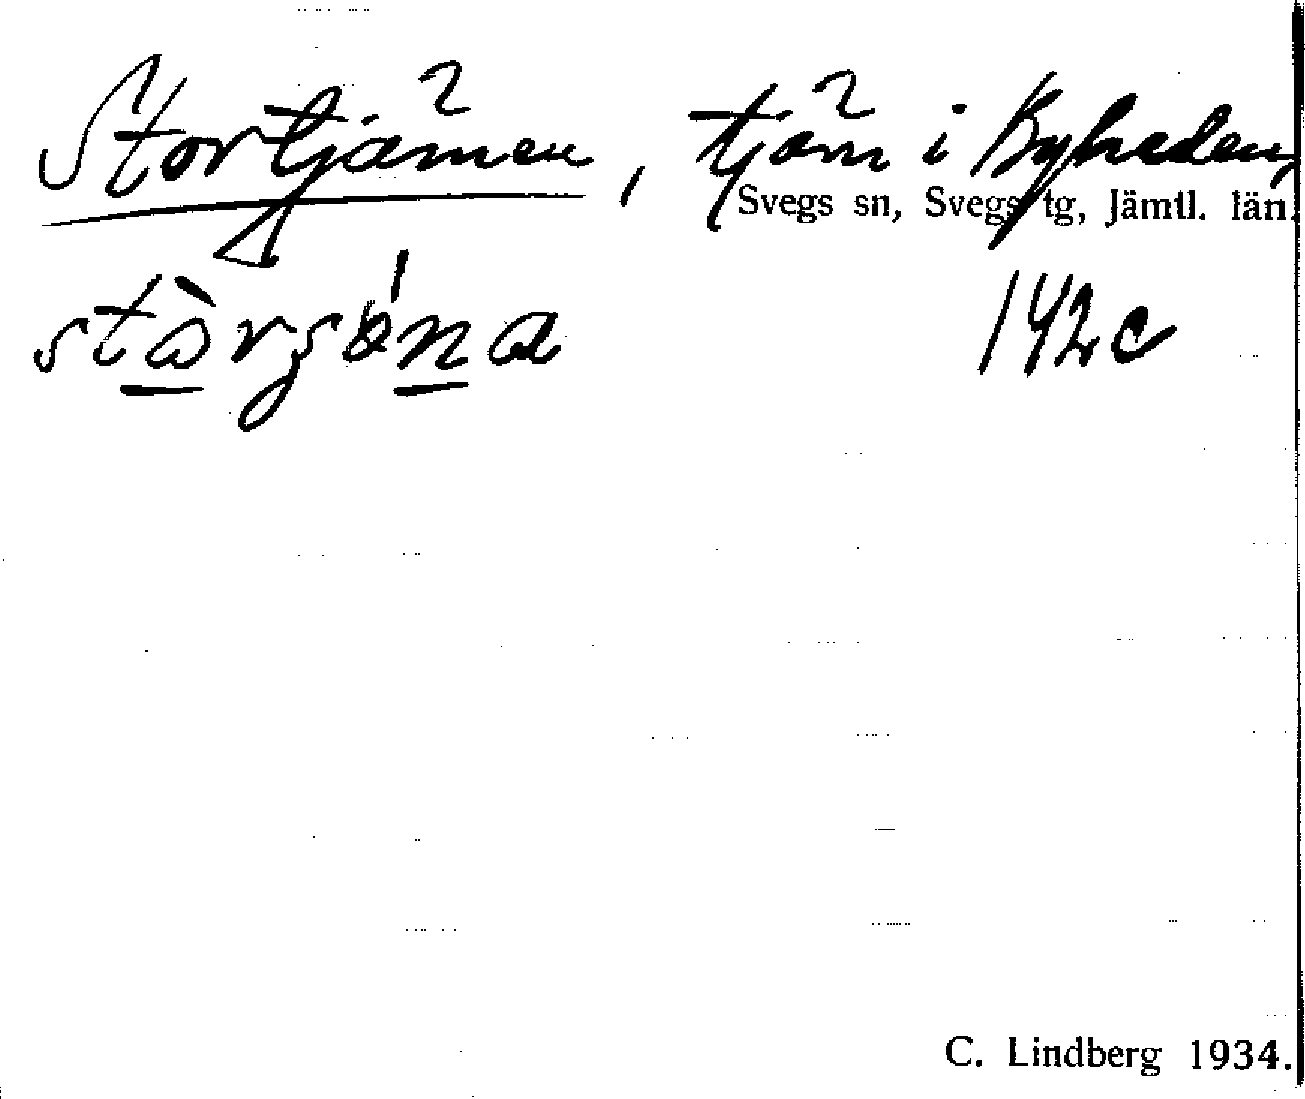 Stortjärnen, tjärn i Byheden,
Svegs sn, Svegs tg, Jämtl. län.
142 c
C. Lindberg 1934.